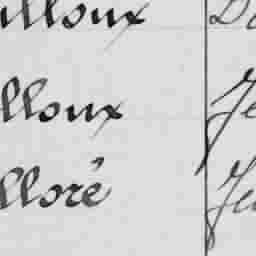 illoux D
lloux Je
lloré Je